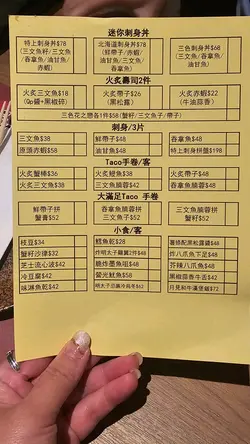 迷你刺身丼
特上刺身丼$78
(三文魚籽/三文魚/
吞拿魚/油甘魚/
赤蝦)
北海道刺身丼$78
(鮮帶子/赤蝦/
油甘魚/三文魚/
吞拿魚)
三色刺身丼$68
(三文魚/吞拿魚/
油甘魚)
火炙壽司2件
火炙三文魚$18
(QQ醬+黑椒碎)
火炙帶子$26
(黑松露)
火炙赤蝦$22
(牛油蒜香)
三色花之戀各1件$58(蟹籽/三文魚子/帶子)
刺身/3片
三文魚$38
鮮帶子$48
吞拿魚$48
原頭赤蝦$58
油甘魚$48
特上刺身拼盤$198
Taco手卷/客
火炙蟹棒$36
火炙鰻魚$38
火炙帶子$48
火炙三文魚$38
三文魚腩蓉$42
吞拿魚腩蓉$42
大滿足Taco 手卷
鮮帶子拼
蟹膏$52
吞拿魚腩蓉拼
三文魚子$52
三文魚腩蓉拼
蟹籽$52
小食/客
枝豆$34
鱈魚乾$48
蟹籽沙律$32
炸八爪魚下足$48
芝士流心波$42
脆炸墨魚咀$48
芥辣八爪魚$48
冷豆腐$42
螢光魷魚$58
黑椒蒜香牛舌$42
味淋魚乾$42
月見和牛漢堡扒$72